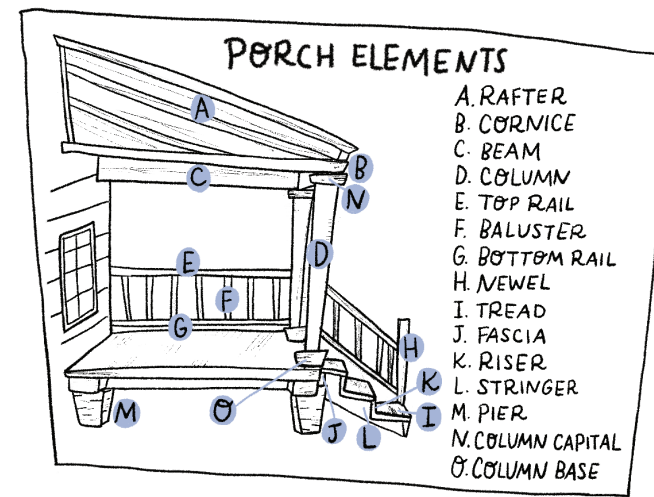 PORCH ELEMENTS
A. RAFTER
B. CORNICE
C. BEAM
D. COLUMN
E. TOP RAIL
F. BALUSTER
G. BOTTOM RAIL
H. NEWEL
I. TREAD
J. FASCIA
K. RISER
L. STRINGER
M. PIER
N. COLUMN CAPITAL
O. COLUMN BASE
A
B
C
N
D
E
F
G
H
K
M
O
I
J
L